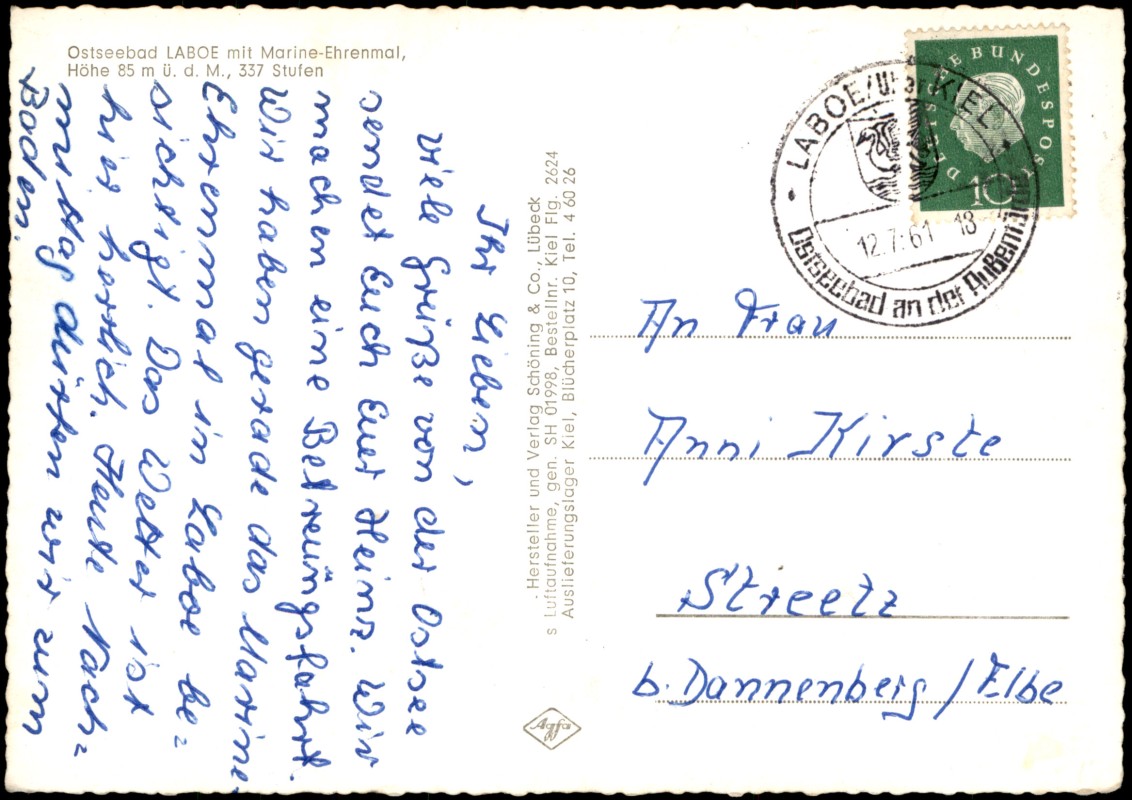 Ostseebad LABOE mit Marine-Ehrenmal,
Höhe 85 m ü. d. M., 337 Stufen
Ihr Lieben,
viele Grüße von der Ostsee
sendet Euch Euer Heinz. Wir
machen eine Betreuungsfahrt.
Wir haben gerade das Marine-
Ehrenmal in Laboe be=
sichtigt. Das Wetter ist
hier herrlich. Heute Nach=
mittag dürfen wir zum
Boden.
Hersteller und Verlag Schöning & Co., Lübeck
s Luftaufnahme, gen. SH 01998, Bestellnr. Kiel Flg. 2624
Auslieferungslager Kiel, Blücherplatz 10, Tel. 4 60 26
Agfa
DEUTSCHE BUNDESPOST
10
LABOE/über KIEL
12.7.61-18
Ostseebad an der Außenförde
An Frau
Anni Kirste
Streetz
b. Dannenberg/Elbe